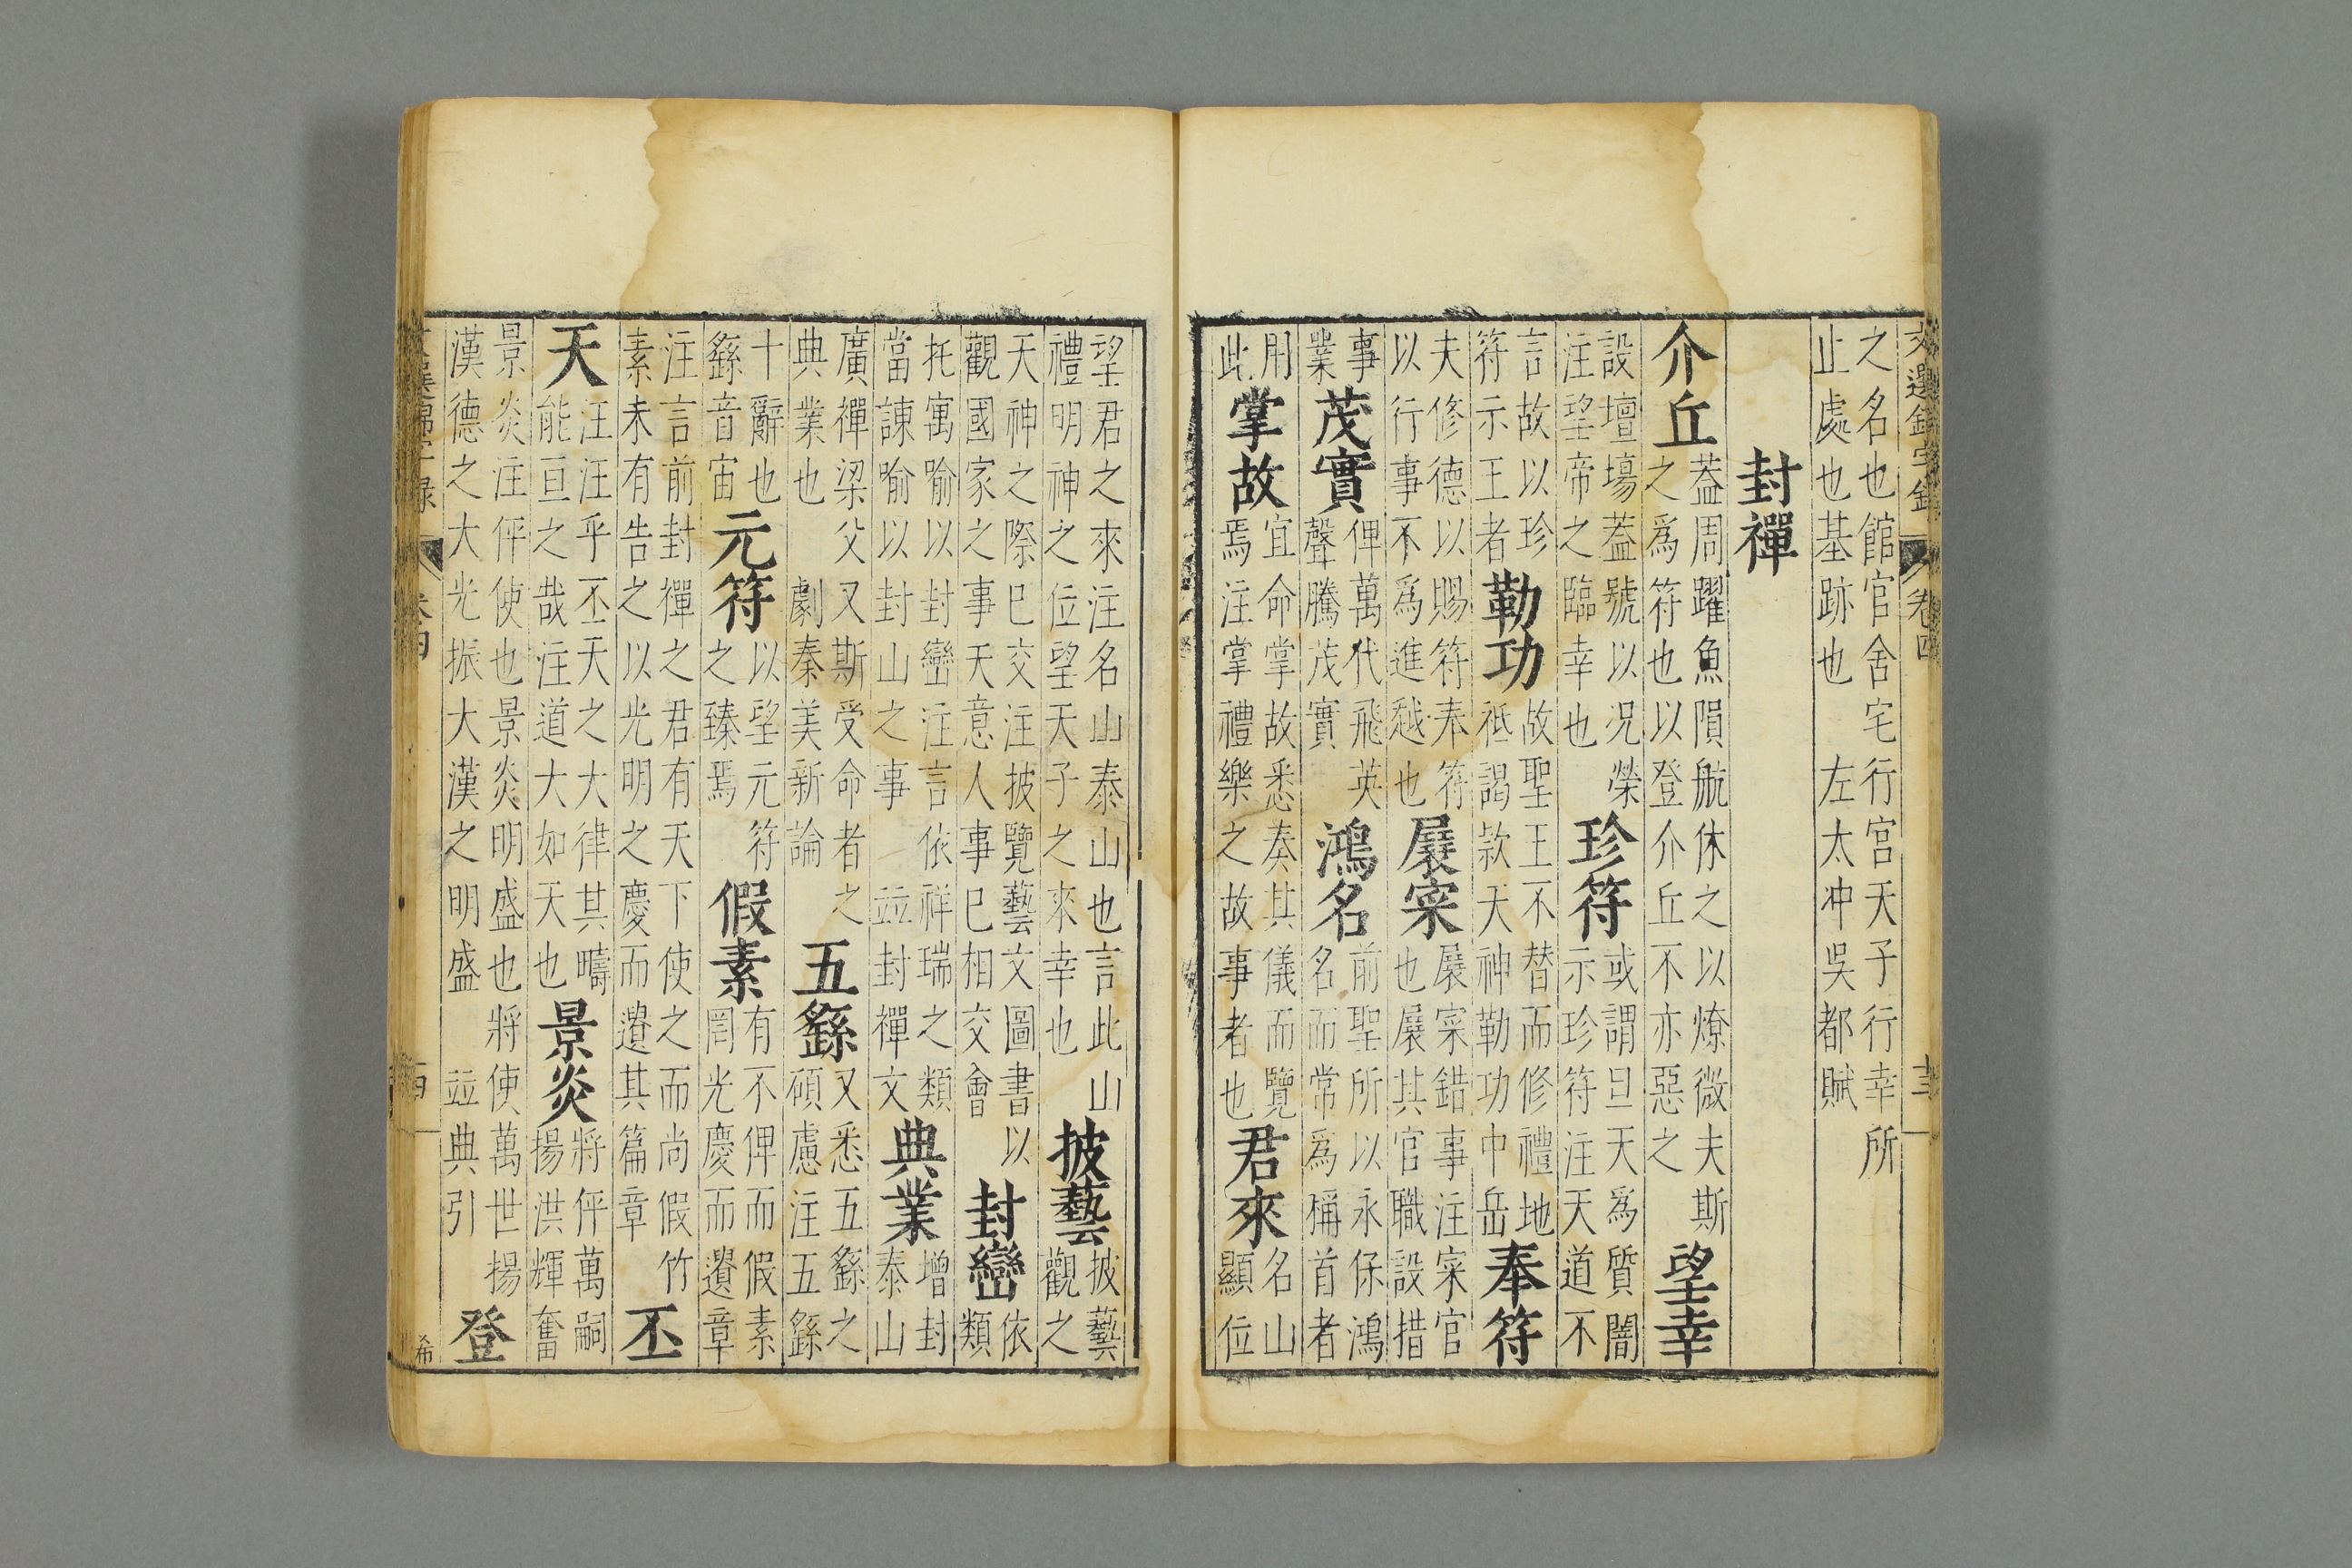 文選錦字錄 卷四 十三
之名也館官舍宅行宮天子行幸所
止處也基跡也 左太冲吳都賦
封禪
介丘
蓋周躍魚隕航休之以燎微夫斯
之爲符也以登介丘不亦惡之
望幸
設壇塲蓋號以况榮
注望帝之臨幸也
珍符
或謂且天爲質闇
示珍符注天道不
言故以珍
符示王者
勒功
故聖王不替而修禮地
祗謁款天神勒功中岳
奉符
夫修德以賜符奉符
以行事不爲進越也
展寀
展寀錯事注寀官
也展其官職設措
事
業
茂實
俾萬代飛英
聲騰茂實
鴻名
前聖所以永保鴻
名而常爲稱首者
用
此
掌故
宜命掌故悉奏其儀而覽
焉注掌禮樂之故事者也
君來
名山
顯位
望君之來注名山泰山也言此山
禮明神之位望天子之來幸也
披藝
披藝
觀之
天神之際已交注披覽藝文圖書以
觀國家之事天意人事已相交會
封巒
依
類
托寓喻以封巒注言依祥瑞之類
當諫喻以封山之事 並封禪文
典業
增封
泰山
廣禪梁父又斯受命者之
典業也 劇秦美新論
五繇
又悉五繇之
碩慮注五繇
十辭也
繇音宙
元符
以望元符
之臻焉
假素
有不俾而假素
罔光慶而遺章
注言前封禪之君有天下使之而尚假竹
素未有告之以光明之慶而遺其篇章
丕
天
汪汪乎丕天之大律其疇
能亘之哉注道大如天也
景炎
將伻萬嗣
揚洪輝奮
景炎注伻使也景炎明盛也將使萬世揚
漢德之大光振大漢之明盛 並典引
登